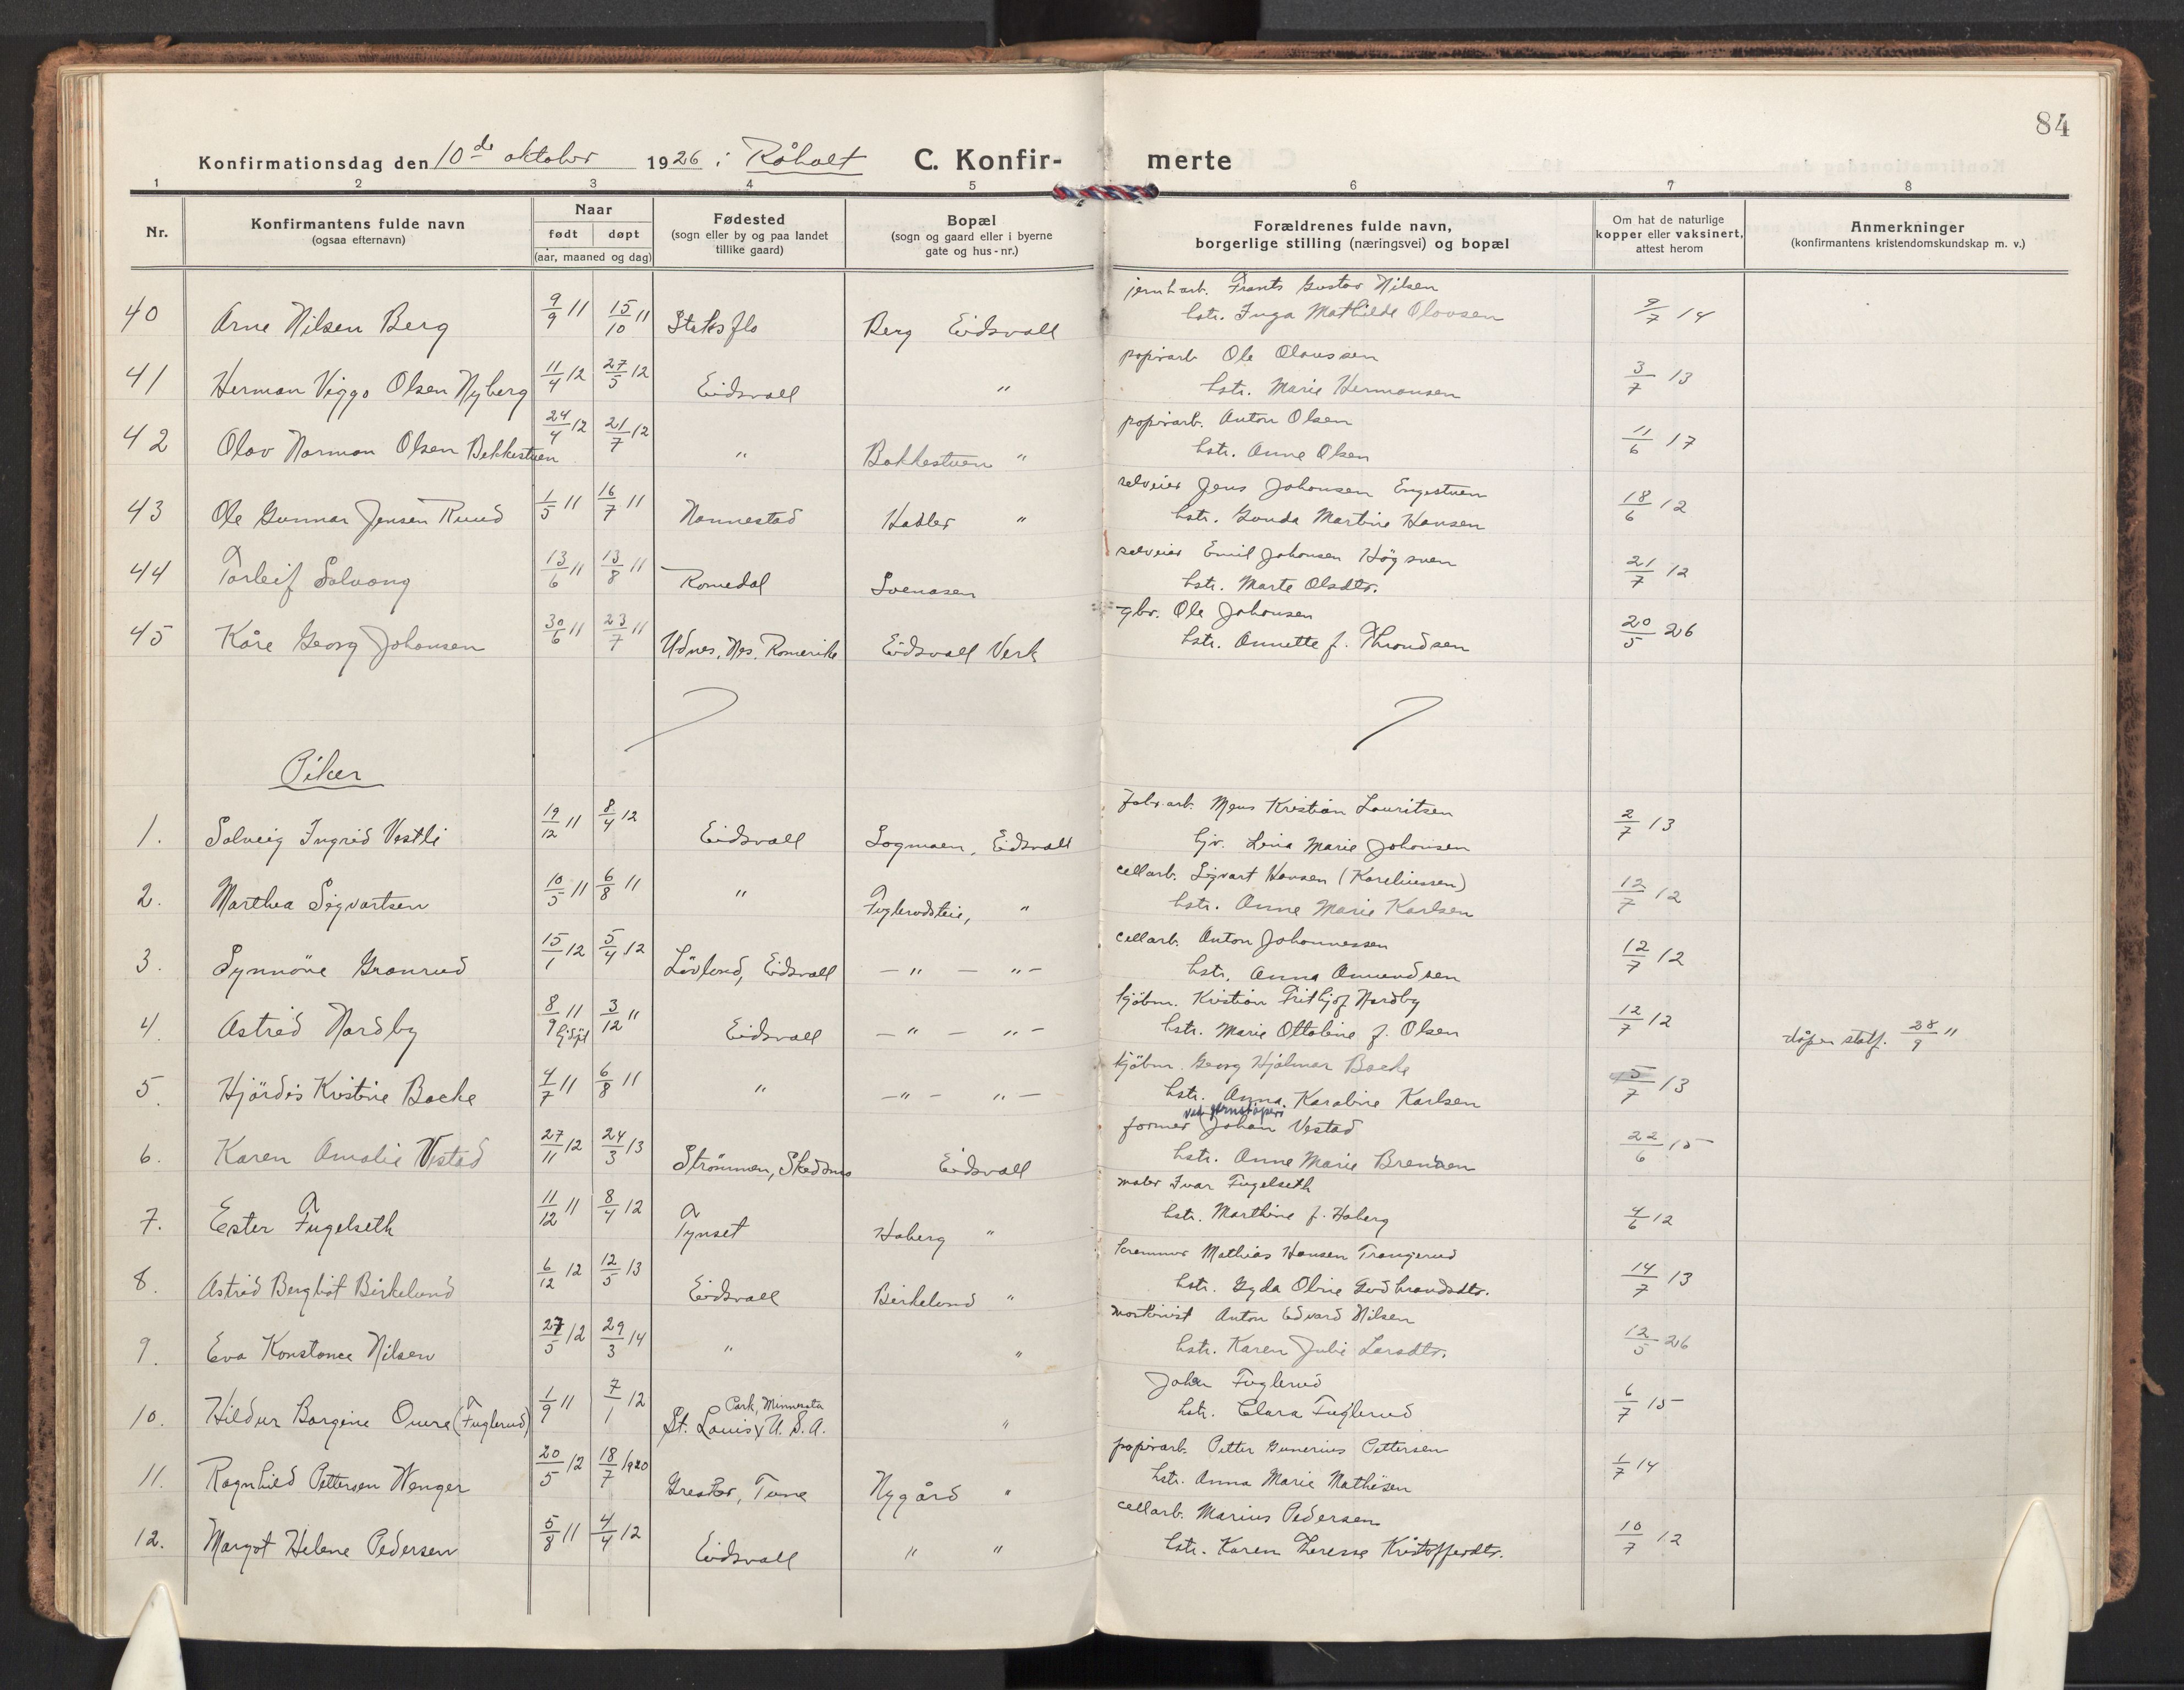 84
Konfirmationsdag den 10de oktober 1926 i Råholt C. Konfir- merte
1 2 3 4 5 6 7 8
Nr. Konfirmantens fulde navn (ogsaa efternavn) Naar født døpt (aar, maaned og dag) Fødested (sogn eller by og paa landet tillike gaard) Bopæl (sogn og gaard eller i byerne gate og hus-nr.) Forældrenes fulde navn, borgerlige stilling (næringsvei) og bopæl Om hat de naturlige kopper eller vaksinert, attest herom Anmerkninger (konfirmantens kristendomskundskap m. v.)
jernb.arb. Frants Gustav Nilsen
40 Arne Nilsen Berg 9/9 11 15/10 11 Berg Eidsvall hstr. Inga Mathilde Olavsen 9/7 14
papirarb. Ole Olaussen
41 Herman Viggo Olsen Nyberg 11/4 12 27/5 12 Eidsvall " hstr. Marie Hermansen 3/7 13
papirarb. Anton Olsen
42 Olav Norman Olsen Bekkestuen 24/4 12 21/7 12 " Bakkestuen " hstr. Anne Olsen 11/6 17
selveier Jens Johansen Engestuen
43 Ole Gunnar Jensen Ruud 1/5 11 16/7 11 Nannestad Hadler " hstr. Gunda Martine Hansen 18/6 12
selveier Emil Johansen Høgsveen
44 Torleif Solvang 13/6 11 13/8 11 Romedal Svenåsen hstr. Marte Olsdtr. 21/7 12
gbr. Ole Johansen
45 Kåre Georg Johansen 30/6 11 23/7 11 Udnes, Nes, Romerike Eidsvall Verk hstr. Annette f. Throndsen 20/5 26
Piker
fabr.arb. Mens Kristian Lauritsen
1. Solveig Ingrid Vestli 19/12 11 8/4 12 Eidsvall Sogmoen, Eidsvall hjv. Lina Marie Johansen 2/7 13
cellarb. Sigvart Hansen (Kareliussen)
2. Marthea Sigvartsen 10/5 11 6/8 11 " Fuglerudsteie, " hstr. Anne Marie Karlsen 12/7 12
cellarb. Anton Johannessen
3. Synnöve Granrud 15/1 12 5/4 12 Lövlund, Eidsvall — " — " — hstr. Anna Amundsen 12/7 12
kjöbm. Kristian Frithjof Nordby
4. Astrid Nordby 8/9 11 hjdpt 3/12 11 Eidsvall — " — " — hstr. Marie Ottoline f. Olsen 12/7 12 dåpen statf. 28/9 11
kjöbm. Georg Hjalmar Bache
5. Hjördis Kristine Bache 4/7 11 6/8 11 " — " — " — hstr. Anna Karoline Karlsen 5/7 13
ved jernstöperi
former Johan Vestad
6. Karen Amalie Vestad 27/11 12 24/3 13 Strömmen, Skedsmo Eidsvall hstr. Anne Marie Brendsen 22/6 15
maler Ivar Fugelseth
7. Ester Fugelseth 11/12 11 8/4 12 Tynset Haberg " hstr. Marthine f. Haberg 4/6 12
kremmer Mathias Hansen Trangerud
8. Astrid Bergliot Birkelund 6/12 12 12/5 13 Eidsvall Birkelund " hstr. Gyda Oline Gudbrandsdtr. 14/7 13
maskinist Anton Edvard Nilsen
9. Eva Konstance Nilsen 27/5 12 29/3 14 " " hstr. Karen Julie Larsdtr. 12/5 26
Johan Fuglerud
Park, Minnesota
10. Hildur Borgine Ouere (Fuglerud) 1/9 11 7/1 12 St. Louis U. S. A. " hstr. Clara Fuglerud 6/7 15
papirarb. Petter Gunerius Pettersen
11. Ragnhild Pettersen Wenger 20/5 12 18/7 1920 Greaker, Tune Nygård " hstr. Anna Marie Mathisen 1/7 14
cellarb. Marius Pedersen
12. Margot Helene Pedersen 5/8 11 4/4 12 Eidsvall " " hstr. Karen Therese Kristoffersdtr. 10/7 12